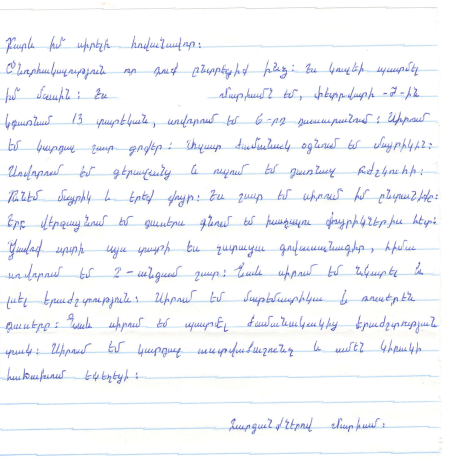 Բարև իմ սիրելի հովանավոր։
Շնորհակալություն որ դուք ընտրեցիք ինձ։ Ես կուզեի պատմել
իմ մասին։ Ես Մարիամն եմ, փետրվարի -7-ին
կդառնամ 13 տարեկան, սովորում եմ 6-րդ դասարանում։ Սիրում
եմ կարդալ շատ գրքեր։ Միշտ ժամանակ օգնում եմ մայրիկին։
Սովորում եմ գերազանց և ուզում եմ դառնալ բժշկուհի։
Ունեմ մայրիկ և երեք քույր։ Ես շատ եմ սիրում իմ ընտանիքը։
Երբ վերջացնում եմ դասերս գնում եմ խաղալու քույրիկներիս հետ։
Ցավոք սրտի այս տարի ես չստացա գովասանագիր, հիմա
սովորում եմ 2-անգամ շատ։ Նաև սիրում եմ նկարել և
լսել երաժշտություն։ Սիրում եմ մաթեմատիկա և ռուսերեն
դասերը։ Նաև սիրում եմ պարել ժամանակակից երաժշտության
տակ։ Սիրում եմ կարդալ աստվածաշունչ և ամեն կիրակի
հաճախում եկեղեցի։
Հարգանքներով Մարիամ։